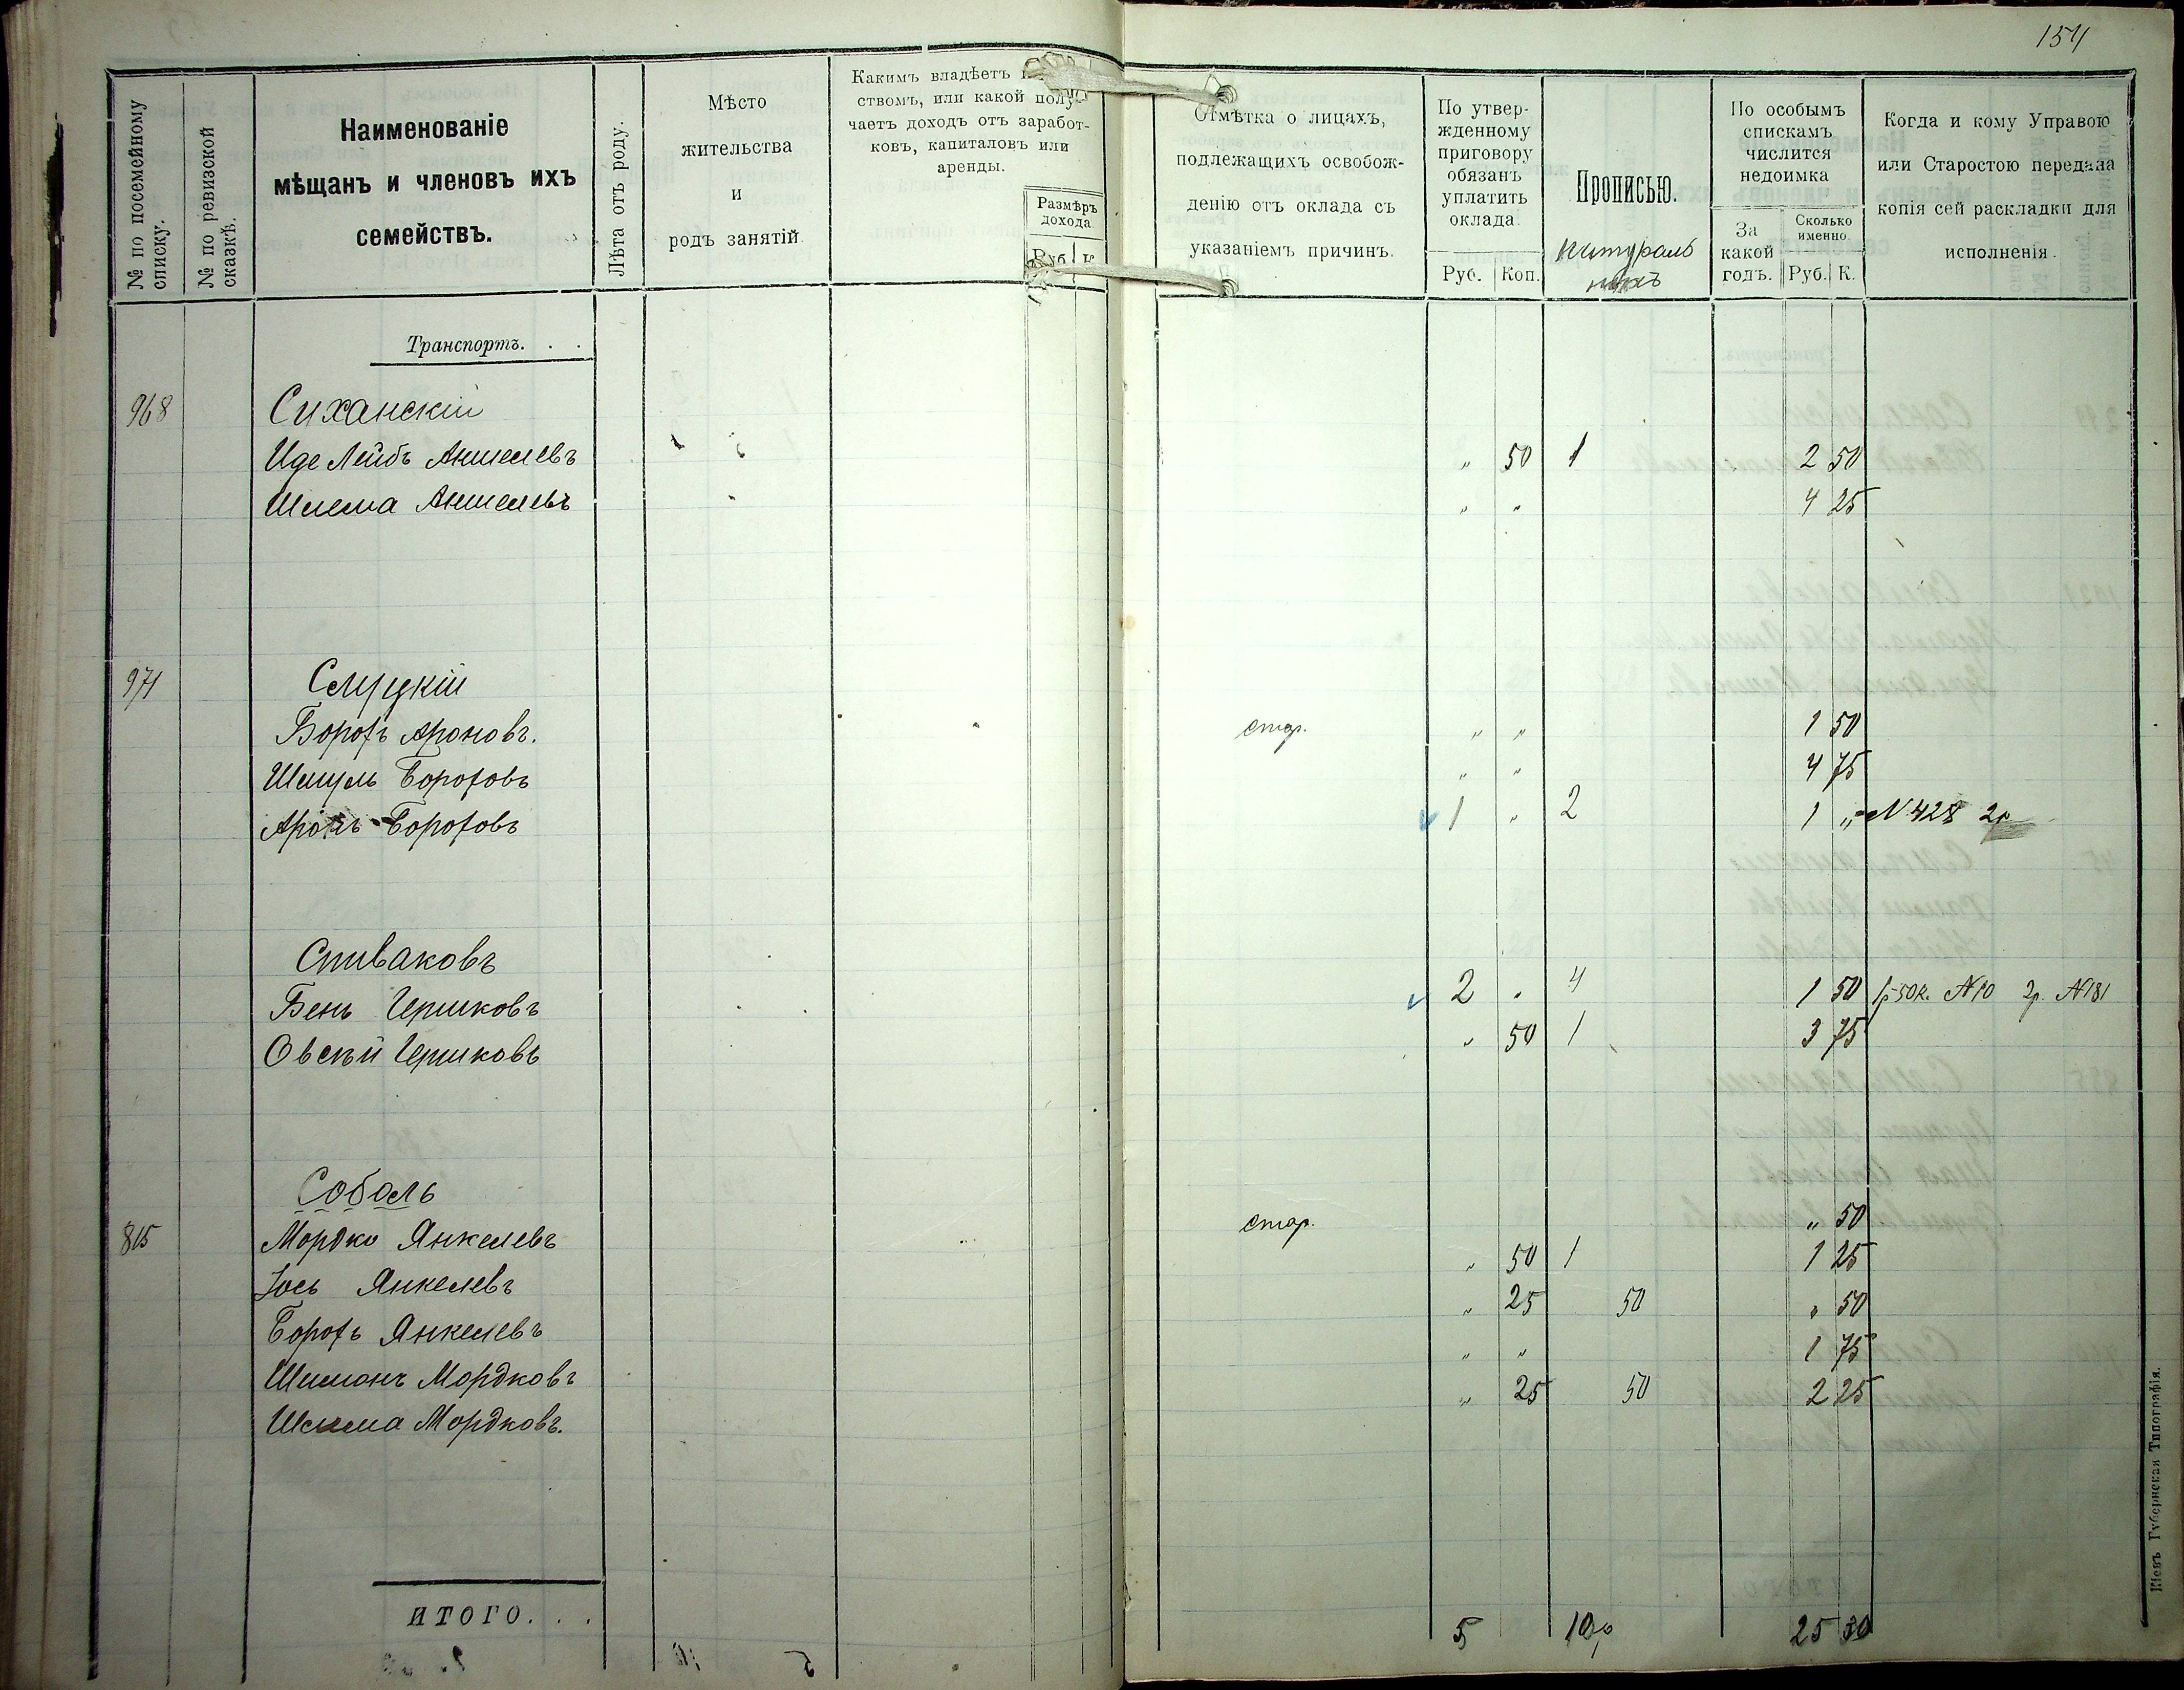 154
№ по посемейному списку.
№ по ревизской сказкѣ.
Наименованіе
мѣщанъ и членовъ ихъ
семействъ.
Лѣта отъ роду.
Мѣсто
жительства
и
родъ занятій
Какимъ владѣетъ
ствомъ, или какой полу-
чаетъ доходъ отъ заработ-
ковъ, капиталовъ или
аренды.
Размѣръ
дохода
Руб. К.
Отмѣтка о лицахъ,
подлежащихъ освобож-
денію отъ оклада съ
указаніемъ причинъ.
По утвер-
жденному
приговору
обязанъ
уплатить
оклада
Руб. Коп.
Прописью.
натураль
ныхъ
По особымъ
спискамъ
числится
недоимка
За
какой
годъ.
Сколько
именно.
Руб. К.
Когда и кому Управою
или Старостою передана
копія сей раскладки для
исполненія.
Транспортъ. . .
968 Суханскій
Иде Лейбъ Аншелевъ „ 50 1 2 50
Шлема Аншелевъ „ „ 4 25
971 Слуцкій
Борохъ Ароновъ. стар. „ „ 1 50
Шмуль Бороховъ „ „ 4 75
Аронъ Бороховъ 1 „ 2 1 „ N 428 2р
Спиваковъ
Бень Гершковъ 2 „ 4 1 50 1р 50к. N10 2р. N181
Овсѣй Гершковъ „ 50 1 3 75
Соболь
815 Мордко Янкелевъ стар. „ 50
Іось Янкелевъ „ 50 1 1 25
Борохъ Янкелевъ „ 25 50 „ 50
Шимонъ Мордковъ „ „ 1 75
Шлема Мордковъ. „ 25 50 2 25
ИТОГО. . .
5 10р 25 50
Кіевъ Губернская Типографія.